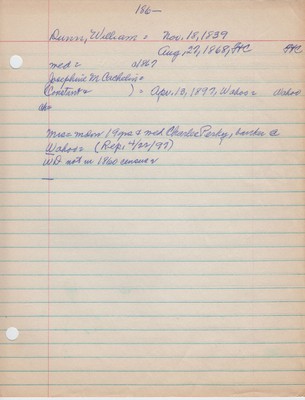 186—
Dunn, William = Nov. 18, 1839
Aug. 27, 1868, StC StC
med = 2/1867
Josephine M.
Constant = ) = Apr. 13, 1897, Wahoo = Wahoo
Mrs = mom 19 med Charles Perky, banker @
Wahoo = (Rep: 4/22/97)
WD not in 1860 census =
—